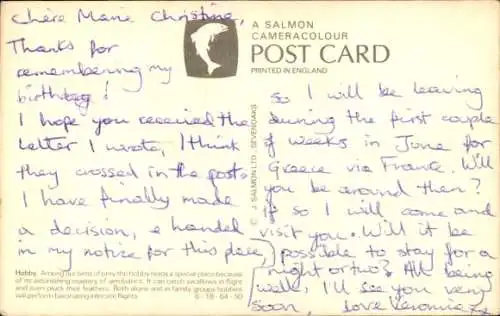 Chère Marie Christine,
Thanks for
remembering my
birthday!
I hope you received the
letter I wrote, I think
they crossed in the post.
I have finally made
a decision, & handed
in my notice for this place,
A SALMON
CAMERACOLOUR
POST CARD
PRINTED IN ENGLAND
so I will be leaving
during the first couple
of weeks in June for
Greece via France. Will
you be around then?
If so I will come and
visit you. Will it be
possible to stay for a
night or two? All being
well, I'll see you very
soon, love Veronica xx
© J. SALMON LTD · SEVENOAKS
Hobby. Among our birds of prey the hobby holds a special place because
of its astounding mastery of aerobatics. It can catch swallows in flight
and even pluck their feathers. Both alone and in family groups hobbies
will perform fascinating intricate flights. 6-18-64-50